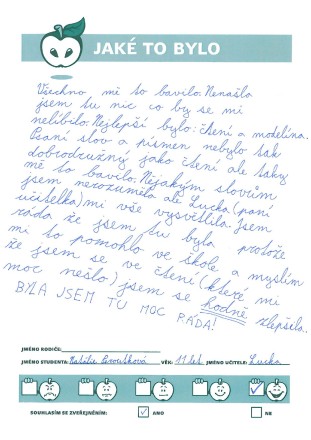 JAKÉ TO BYLO
Všechno mě to bavilo. Nenašla
jsem tu nic co by se mi
nelíbilo. Nejlepší bylo: čtení a modelína.
Psaní slov a písmen nebylo tak
dobrodružný jako čtení ale taky
mě to bavilo. Nějakým slovům
jsem nerozuměla ale Lucka (paní
učitelka) mi vše vysvětlila. Jsem
ráda že jsem tu byla protože
mi to pomohlo ve škole a myslím
že jsem se ve čtení (které mi
moc nešlo) jsem se hodně zlepšila.
BYLA JSEM TU MOC RÁDA!
JMÉNO RODIČE:
JMÉNO STUDENTA: Natálie VĚK: 11 let JMÉNO UČITELE: Lucka
SOUHLASÍM SE ZVEŘEJNĚNÍM: ANO NE